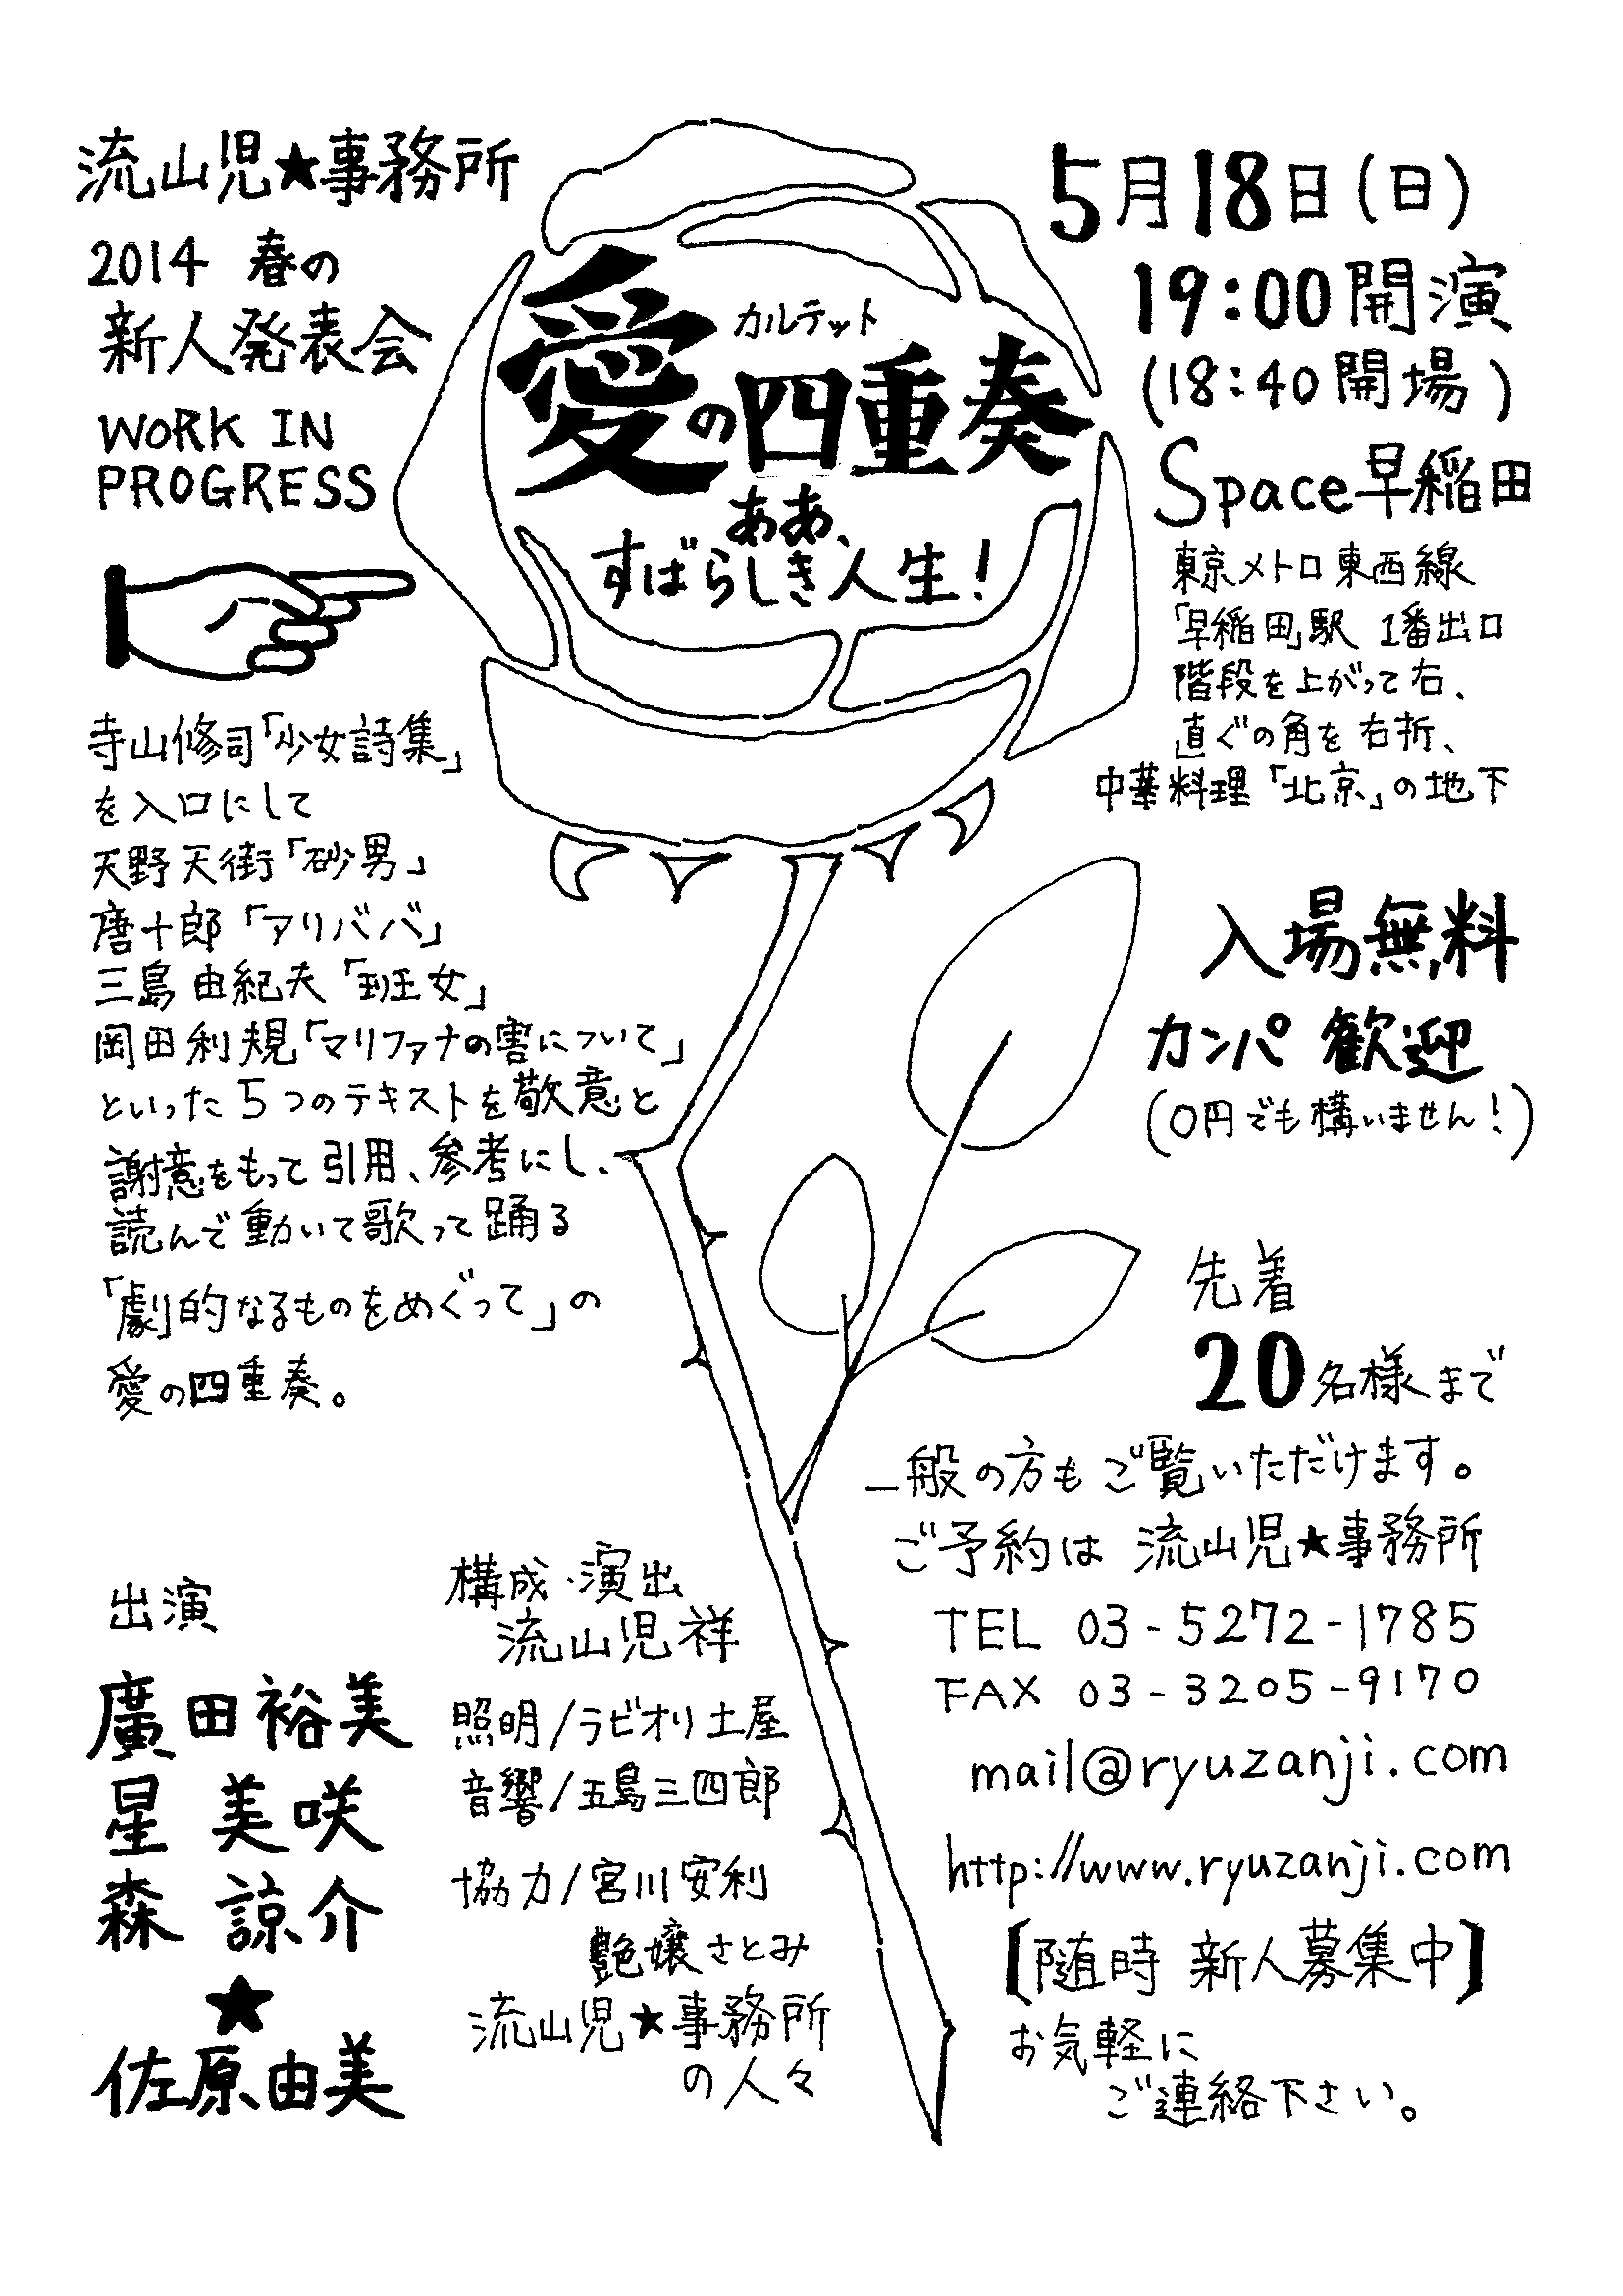 流山児★事務所
2014 春の
新人発表会
WORK IN
PROGRESS
カルテット
愛の四重奏
ああ、
すばらしき人生！
5月18日（日）
19:00開演
（18:40開場）
Space早稲田
東京メトロ東西線
「早稲田」駅 1番出口
階段を上がって右、
直ぐの角を右折、
中華料理「北京」の地下
入場無料
カンパ歓迎
（0円でも構いません！）
先着
20名様まで
一般の方もご覧いただけます。
ご予約は 流山児★事務所
TEL 03-5272-1785
FAX 03-3205-9170
mail@ryuzanji.com
http://www.ryuzanji.com
【随時 新人募集中】
お気軽に
ご連絡下さい。
寺山修司「少女詩集」
を入口にして
天野天街「砂男」
唐十郎「アリババ」
三島由紀夫「班女」
岡田利規「マリファナの害について」
といった5つのテキストを敬意と
謝意をもって引用、参考にし、
読んで動いて歌って踊る
「劇的なるものをめぐって」の
愛の四重奏。
出演
廣田裕美
星 美咲
森 諒介
★
佐原由美
構成・演出
流山児祥
照明/ラビオリ土屋
音響/五島三四郎
協力/宮川安利
艶嬢さとみ
流山児★事務所
の人々